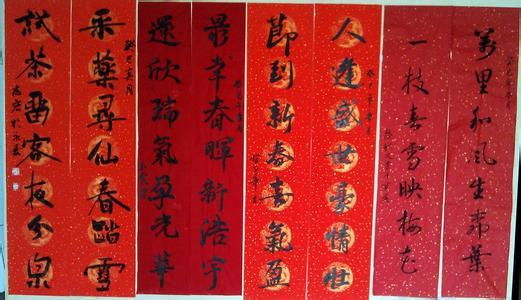 萬里和風生柳葉
一枝喜雪映梅花
人逢盛世豪情壯
節到新春喜氣盈
最幸春暉新浩宇
還欣瑞氣孕光華
采藥尋仙春踏雪
試茶留客夜分泉